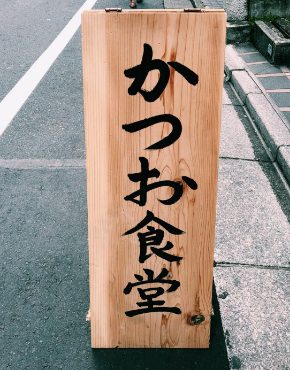 かつお食堂